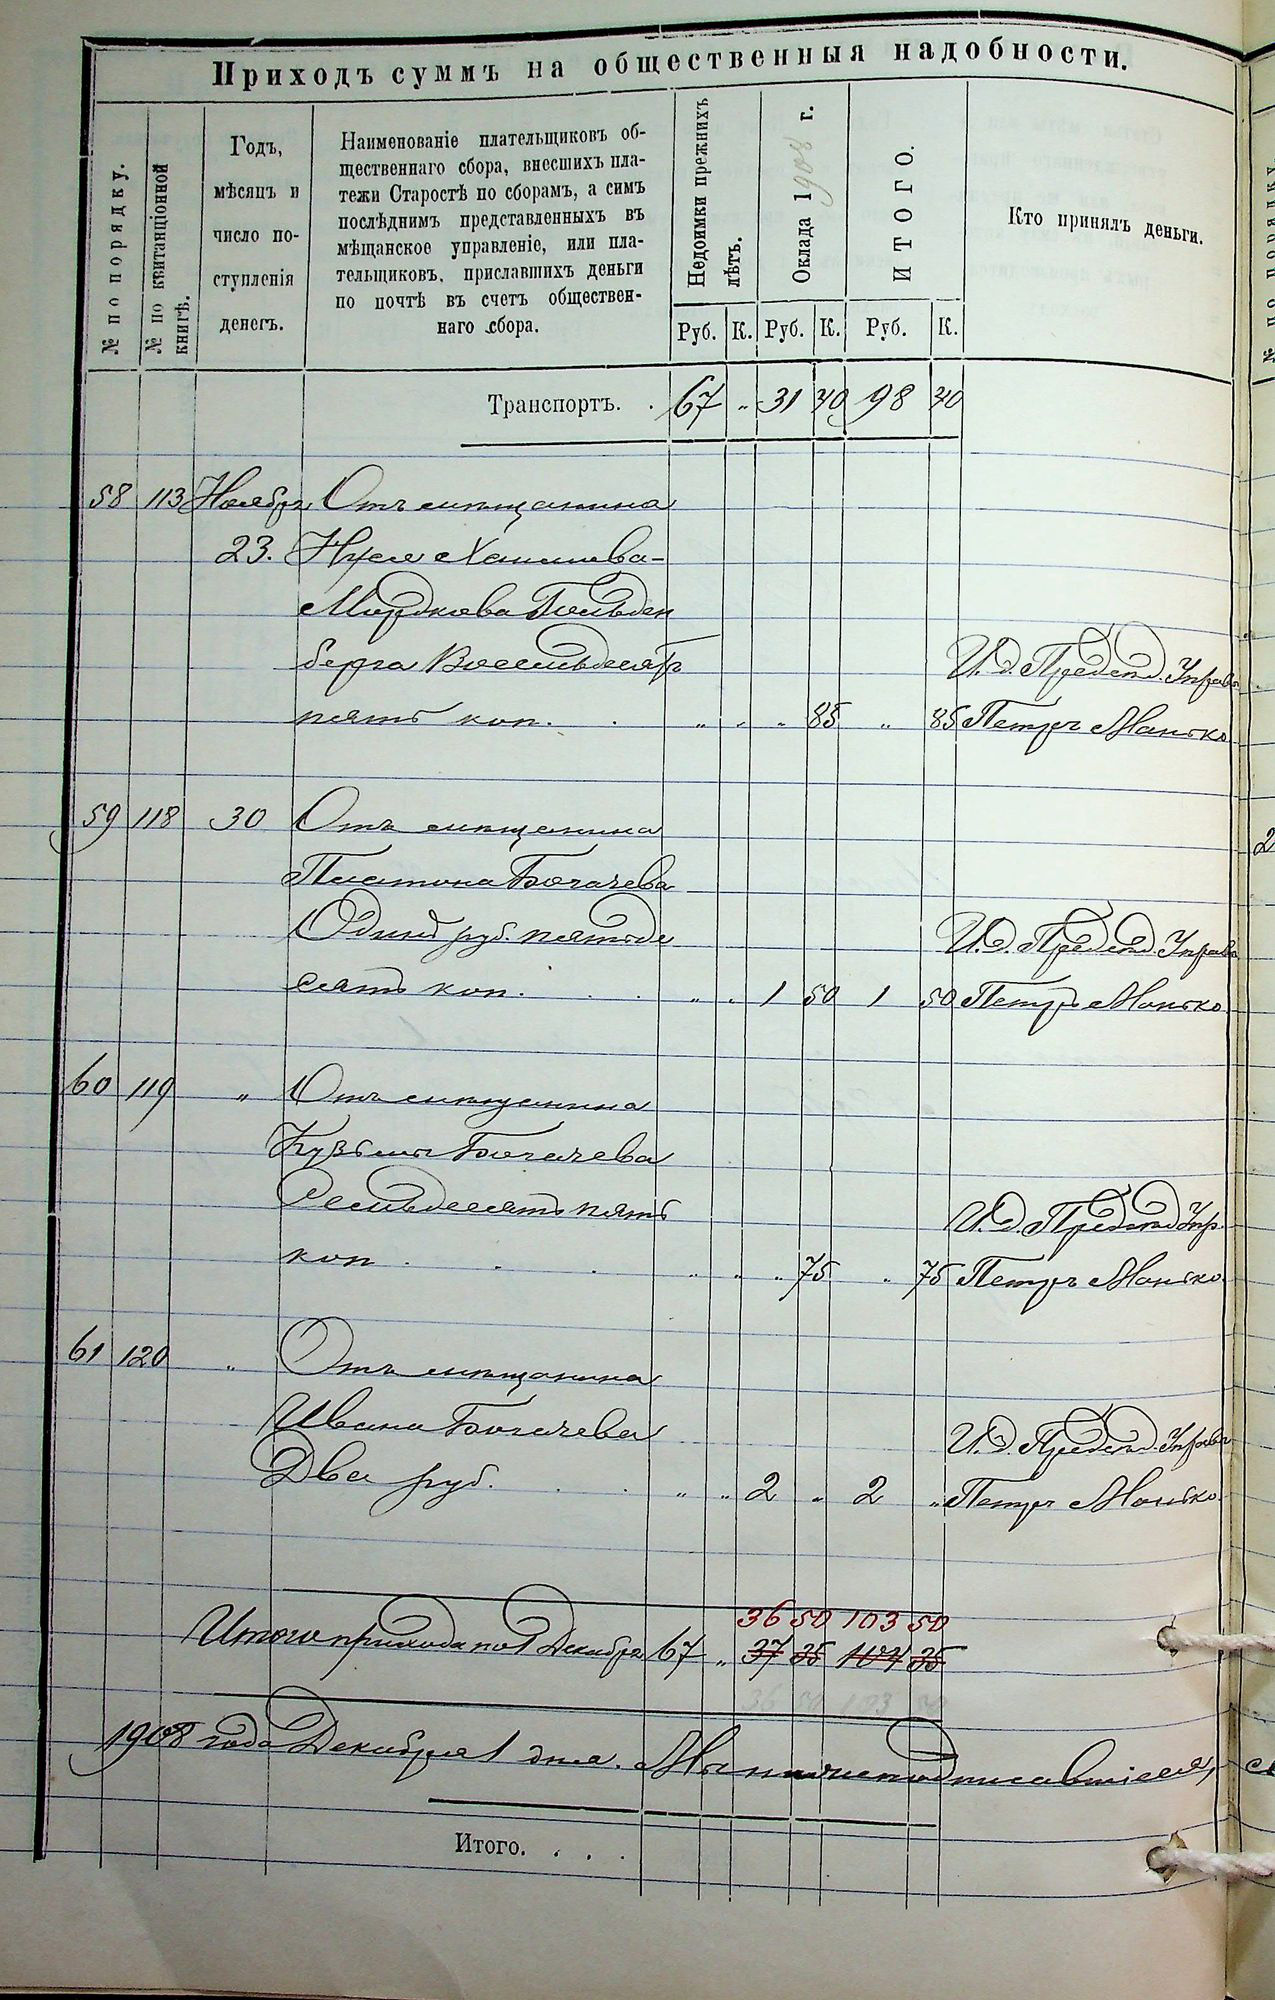 Приходъ суммъ на общественныя надобности.
№ по порядку.
№ по квитанціонной книгѣ.
Годъ,
мѣсяцъ и
число по-
ступленія
денегъ.
Наименованіе плательщиковъ об-
щественнаго сбора, внесшихъ пла-
тежи Старостѣ по сборамъ, а симъ
послѣднимъ представленныхъ въ
мѣщанское управленіе, или пла-
тельщиковъ, приславшихъ деньги
по почтѣ въ счетъ обществен-
наго сбора.
Недоимки прежнихъ лѣтъ.
Оклада 1908 г.
ИТОГО.
Кто принялъ деньги.
Руб. К. Руб. К. Руб. К.
Транспортъ. . 67 „ 31 40 98 40
58 113 Ноябрь Отъ мѣщанина
23. Нухема
Мордкова Гольден
берга Восемьдесятъ И. д. Предсѣд. Управы
пять коп. . „ „ „ 85 „ 85 Петръ Манько
59 118 30 Отъ мѣщанина
Платона Богачева
Одинъ руб. пятьде И. д. Предсѣд. Управы
сятъ коп. . . „ „ 1 50 1 50 Петръ Манько
60 119 „ Отъ мѣщанина
Кузьмы Богачева
Семьдесятъ пять И. д. Предсѣд Упр.
коп . . . „ „ „ 75 „ 75 Петръ Манько
61 120 „ Отъ мѣщанина
Ивана Богачева И. д. Предсѣд. Управы
Два руб. . . . „ „ 2 „ 2 „ Петръ Манько
36 50 103 50
Итого прихода по 1 Декабря 67 „ 37 35 104 35
36 50 103 50
1908 года Декабря 1 дня. Мы нижеподписавшіеся,
Итого. . . .